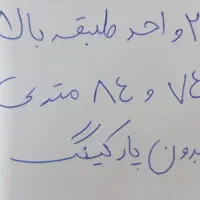 ۲ واحد طبقه بالا
۷۴ و ۸۴ متری
بدون پارکینگ